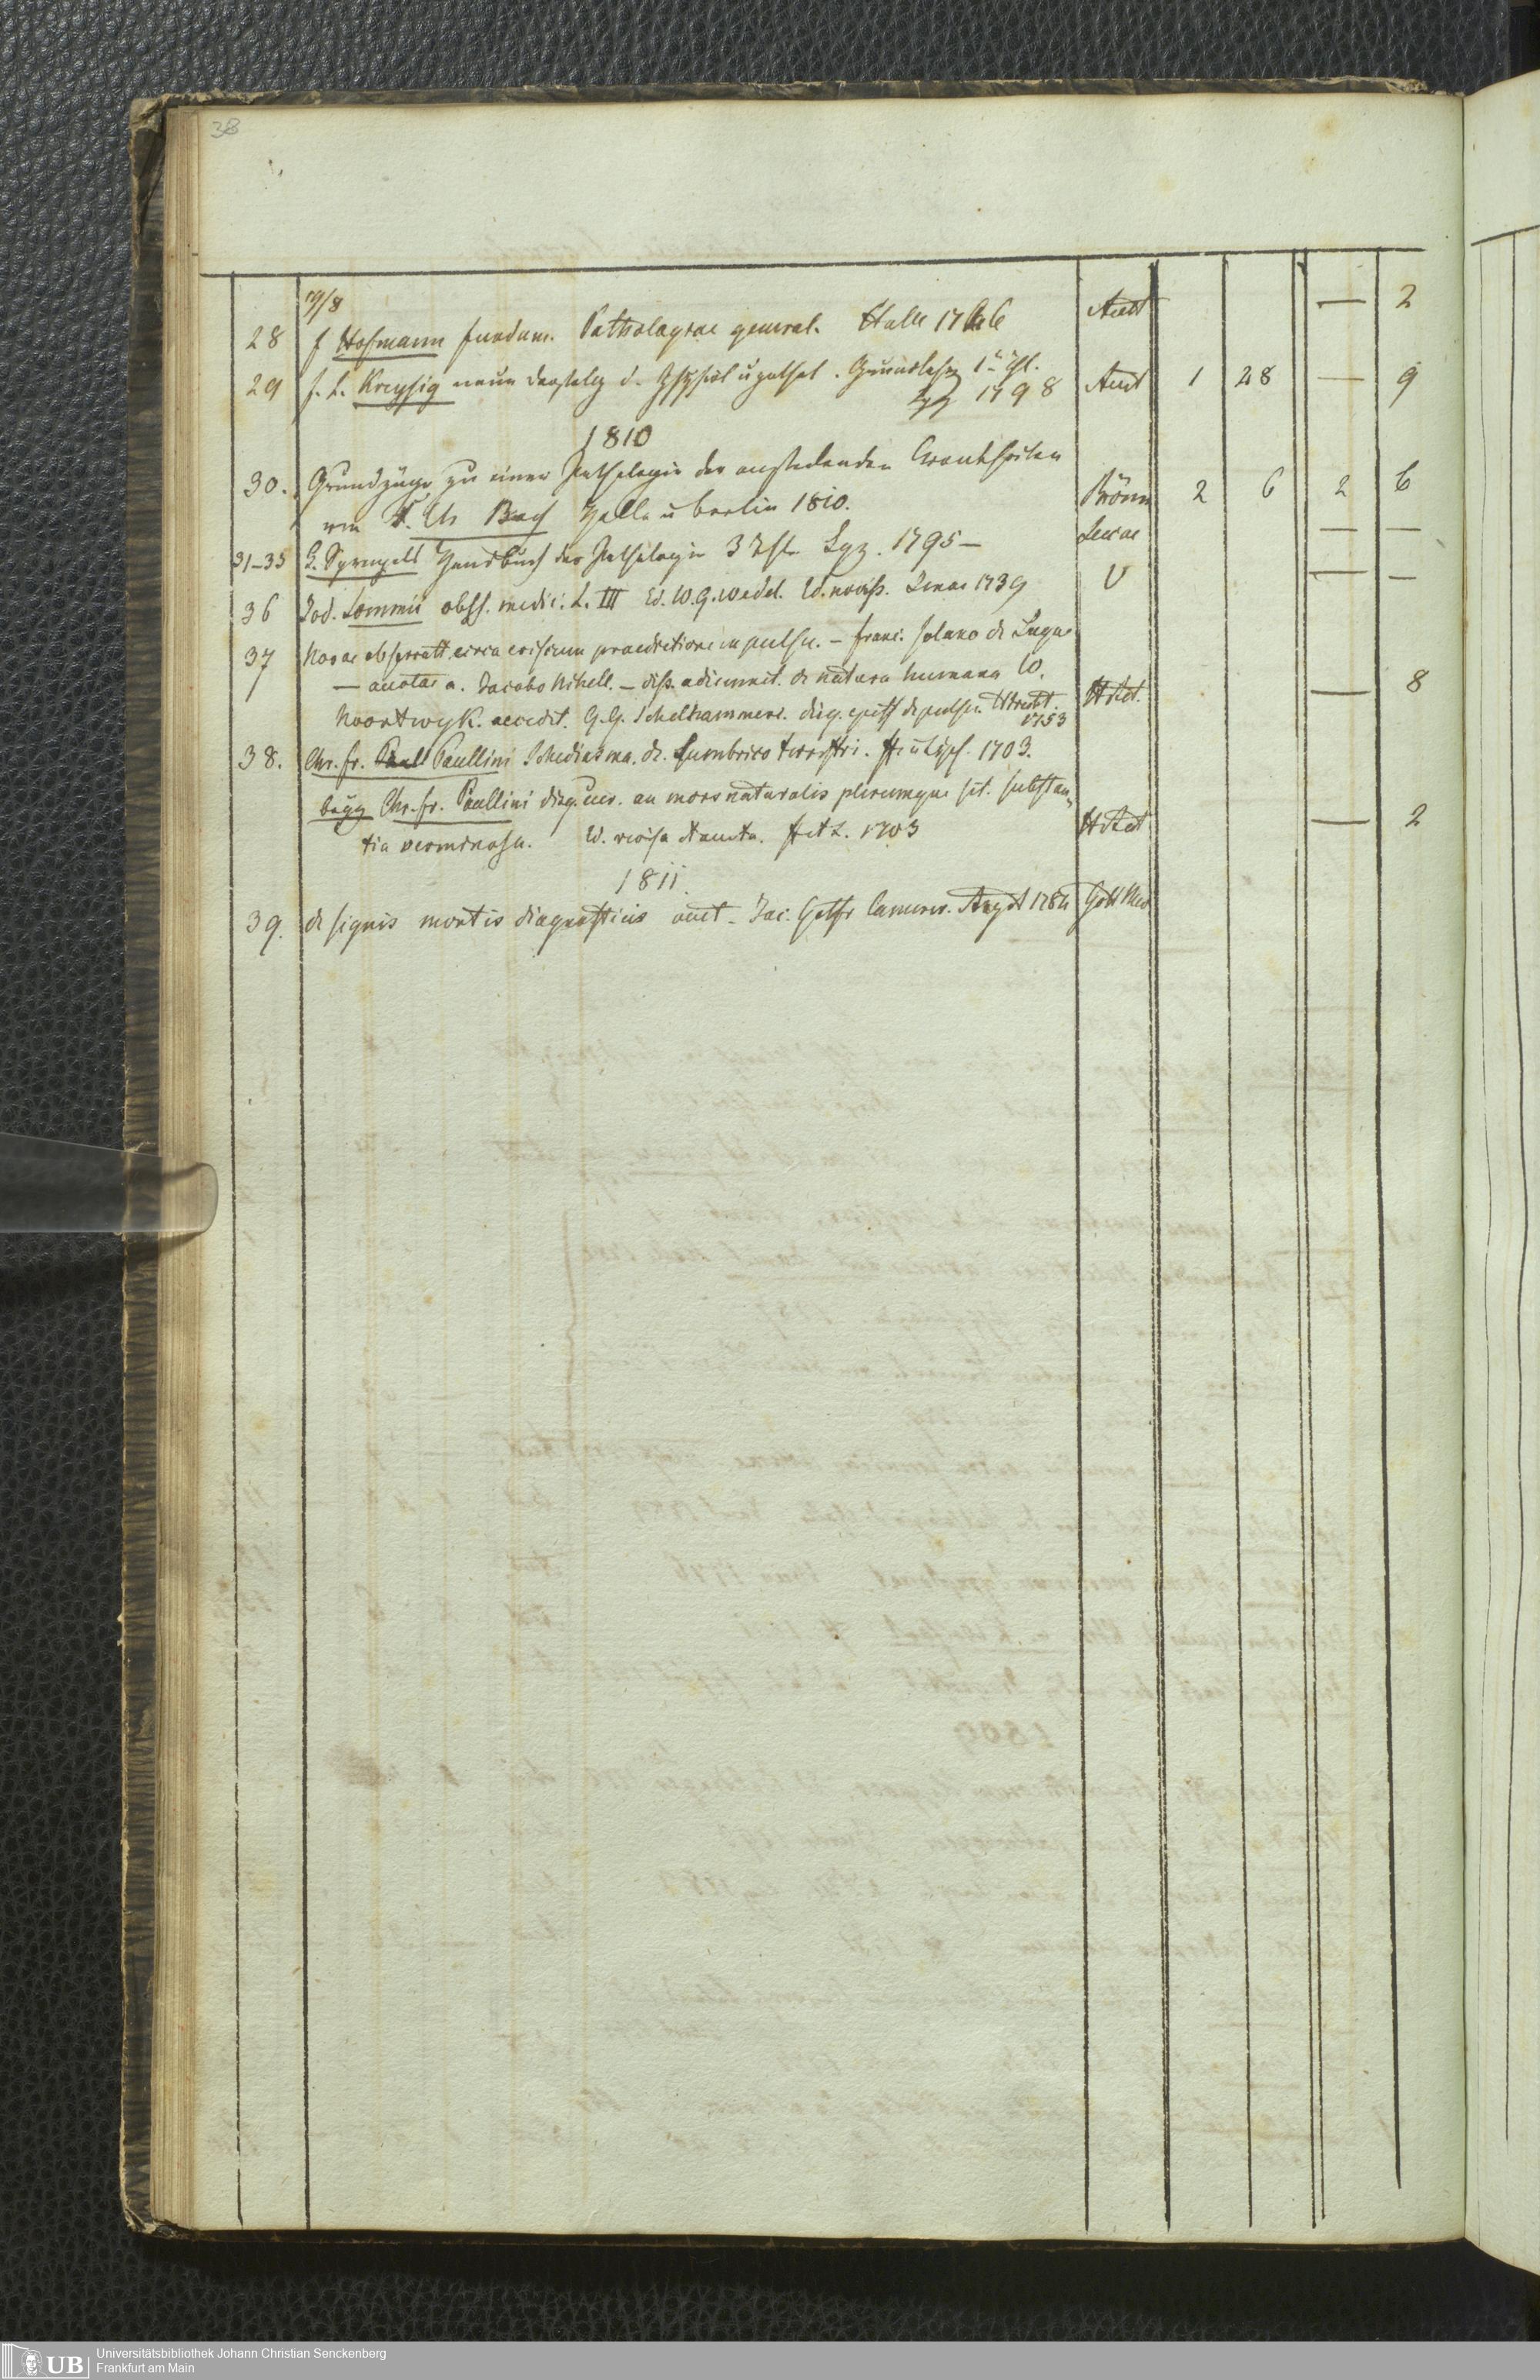 38
19/8
28 f Hofmann fundam. Pathologiae general. Halle 1746 Auct — 2
29 f. L. Kreysig neue darstelg d. physiol u pathol. Grundlehrn 1r Thl. Auct 1 28 — 9
Lpg 1798
1810
30. Grundzüge zu einer Pathologie der ansteckenden Krankheiten
von Bach Halle u Berlin 1810. Brönn 2 6 2 6
31-35 Sprengels Handbuch der Pathologie 3 Thl. Lpz. 1795 — — —
36 Jod. Lommii obss. medic. L. III Ed. W. G. Wedel. Ed. noviss. Jenae 1739 V — —
37 Novae observatt. circa crisium praedictionem ex pulsu. — franc. Solano de Luque
— auctae a. Jacobo Nihell. — diss. adiecit. de natura humana W.
Noortwyk. accedit. G. G. Schelhammeri. disq. epist. de pulsu. — 8
1753
38. Chr. fr. Paullini Schediasma. de. Lumbrico terrestri. Fr. u Lips. 1703.
Chr. fr. Paullini disq. cur. an mors naturalis plerumque sit. substan„
tia verminosa. Ed. revisa et aucta. F et L. 1703 — 2
1811.
39. de signis mortis diagnosticis auct. Jac. Gotfr Camerer. 1784
UB
Universitätsbibliothek Johann Christian Senckenberg
Frankfurt am Main